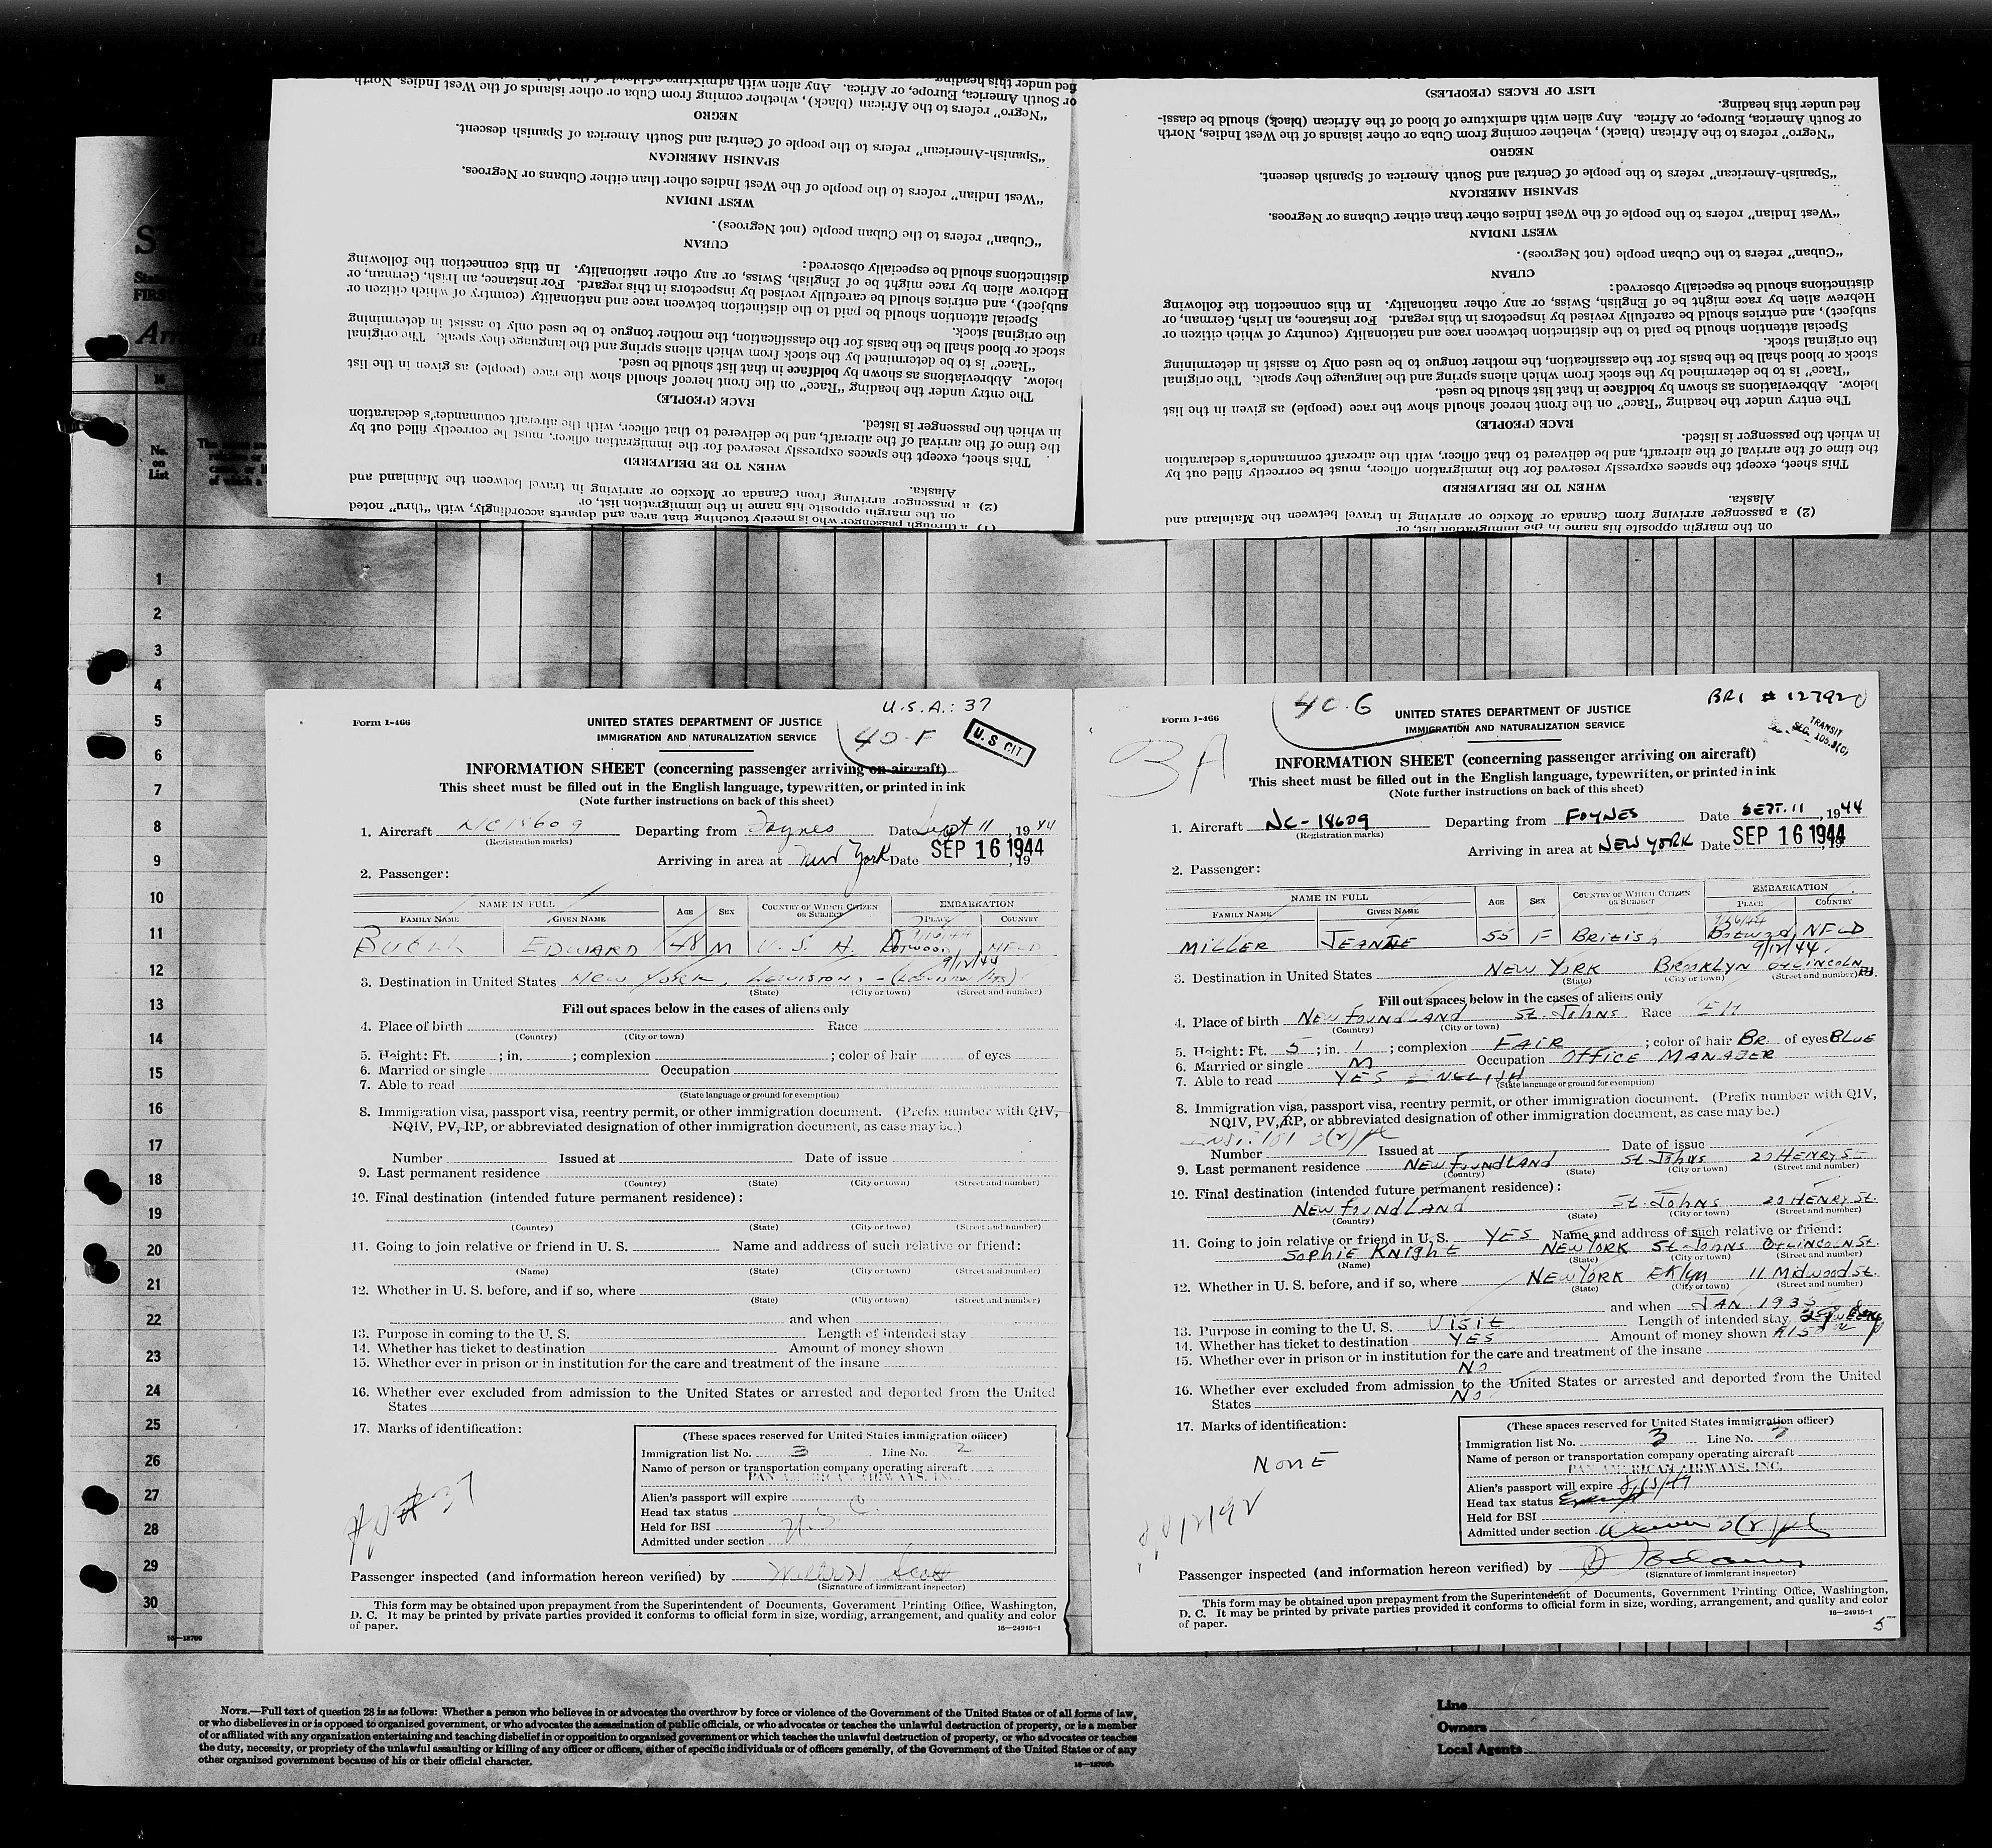 LIST OF RACES (PEOPLES)
fied under this heading.
or South America, Europe, or Africa. Any alien with admixture of blood of the African (black) should be classi-
"Negro" refers to the African (black), whether coming from Cuba or other islands of the West Indies, North
NEGRO
"Spanish-American" refers to the people of Central and South America of Spanish descent.
SPANISH AMERICAN
"West Indian" refers to the people of the West Indies other than either Cubans or Negroes.
WEST INDIAN
"Cuban" refers to the Cuban people (not Negroes).
CUBAN
distinctions should be especially observed:
Hebrew alien by race might be of English, Swiss, or any other nationality. In this connection the following
subject), and entries should be carefully revised by inspectors in this regard. For instance, an Irish, German, or
Special attention should be paid to the distinction between race and nationality (country of which citizen or
the original stock.
stock or blood shall be the basis for the classification, the mother tongue to be used only to assist in determining
"Race" is to be determined by the stock from which aliens spring and the language they speak. The original
below. Abbreviations as shown by boldface in that list should be used.
The entry under the heading "Race" on the front hereof should show the race (people) as given in the list
RACE (PEOPLE)
in which the passenger is listed.
the time of the arrival of the aircraft, and be delivered to that officer, with the aircraft commander's declaration
This sheet, except the spaces expressly reserved for the immigration officer, must be correctly filled out by
WHEN TO BE DELIVERED
Alaska.
(2) a passenger arriving from Canada or Mexico or arriving in travel between the Mainland and
on the margin opposite his name in the immigration list, or
No. on List
1
2
3
4
5
6
7
8
9
10
11
12
13
14
15
16
17
18
19
20
21
22
23
24
25
26
27
28
29
30
U.S.A.: 37
Form I-466
UNITED STATES DEPARTMENT OF JUSTICE
IMMIGRATION AND NATURALIZATION SERVICE
40-F
U.S CIT
INFORMATION SHEET (concerning passenger arriving on aircraft)
This sheet must be filled out in the English language, typewritten, or printed in ink
(Note further instructions on back of this sheet)
1. Aircraft NC18609 Departing from Foynes Date Sept 11, 1944
(Registration marks)
Arriving in area at New York Date SEP 16 1944, 19
2. Passenger:
NAME IN FULL AGE SEX COUNTRY OF WHICH CITIZEN OR SUBJECT EMBARKATION
FAMILY NAME GIVEN NAME PLACE COUNTRY
EDWARD 48 M U. S. A. Botwood NFLD
9/12/44
3. Destination in United States New York, Lewiston,
(State) (City or town) (Street and number)
Fill out spaces below in the cases of aliens only
4. Place of birth Race
(Country) (City or town)
5. Height: Ft. ; in. ; complexion ; color of hair of eyes
6. Married or single Occupation
7. Able to read
(State language or ground for exemption)
8. Immigration visa, passport visa, reentry permit, or other immigration document. (Prefix number with QIV,
NQIV, PV, RP, or abbreviated designation of other immigration document, as case may be.)
Number Issued at Date of issue
9. Last permanent residence
(Country) (State) (City or town) (Street and number)
10. Final destination (intended future permanent residence):
(Country) (State) (City or town) (Street and number)
11. Going to join relative or friend in U. S. Name and address of such relative or friend:
(Name) (State) (City or town) (Street and number)
12. Whether in U. S. before, and if so, where
(State) (City or town) (Street and number)
and when
13. Purpose in coming to the U. S. Length of intended stay
14. Whether has ticket to destination Amount of money shown
15. Whether ever in prison or in institution for the care and treatment of the insane
16. Whether ever excluded from admission to the United States or arrested and deported from the United
States
17. Marks of identification:
(These spaces reserved for United States immigration officer)
Immigration list No. 3 Line No. 2
Name of person or transportation company operating aircraft
PAN AMERICAN AIRWAYS, INC.
Alien's passport will expire
Head tax status
Held for BSI
Admitted under section
Passenger inspected (and information hereon verified) by Walter Scott
(Signature of immigrant inspector)
This form may be obtained upon prepayment from the Superintendent of Documents, Government Printing Office, Washington,
D. C. It may be printed by private parties provided it conforms to official form in size, wording, arrangement, and quality and color
of paper.
16—24915-1
40-G
BRI # 127920
Form I-466
UNITED STATES DEPARTMENT OF JUSTICE
IMMIGRATION AND NATURALIZATION SERVICE
TRANSIT
SEC. 105.3(C)
3A
INFORMATION SHEET (concerning passenger arriving on aircraft)
This sheet must be filled out in the English language, typewritten, or printed in ink
(Note further instructions on back of this sheet)
1. Aircraft NC-18609 Departing from FOYNES Date SEPT. 11, 1944
(Registration marks)
Arriving in area at NEW YORK Date SEP 16 1944, 19
2. Passenger:
NAME IN FULL AGE SEX COUNTRY OF WHICH CITIZEN OR SUBJECT EMBARKATION
FAMILY NAME GIVEN NAME PLACE COUNTRY
MILLER JEANNE 55 F BRITISH Botwood NFLD
9/12/44
3. Destination in United States NEW YORK BROOKLYN 84 LINCOLN RD.
(State) (City or town) (Street and number)
Fill out spaces below in the cases of aliens only
4. Place of birth NEWFOUNDLAND ST. JOHNS Race
(Country) (City or town)
5. Height: Ft. 5 ; in. 1 ; complexion FAIR ; color of hair BR. of eyes BLUE
6. Married or single M Occupation OFFICE MANAGER
7. Able to read YES ENGLISH
(State language or ground for exemption)
8. Immigration visa, passport visa, reentry permit, or other immigration document. (Prefix number with QIV,
NQIV, PV, RP, or abbreviated designation of other immigration document, as case may be.)
Number Issued at Date of issue
9. Last permanent residence NEWFOUNDLAND St. Johns 20 HENRY ST
(Country) (State) (City or town) (Street and number)
10. Final destination (intended future permanent residence):
NEWFOUNDLAND St. Johns 20 HENRY St.
(Country) (State) (City or town) (Street and number)
11. Going to join relative or friend in U. S. YES Name and address of such relative or friend:
SOPHIE KNIGHT NEW YORK St. Johns 84 LINCOLN ST.
(Name) (State) (City or town) (Street and number)
12. Whether in U. S. before, and if so, where NEW YORK BKlyn 11 Midwood St.
(State) (City or town) (Street and number)
and when JAN. 193
13. Purpose in coming to the U. S. VISIT Length of intended stay
14. Whether has ticket to destination YES Amount of money shown
15. Whether ever in prison or in institution for the care and treatment of the insane
NO
16. Whether ever excluded from admission to the United States or arrested and deported from the United
States NO
17. Marks of identification:
NONE
(These spaces reserved for United States immigration officer)
Immigration list No. 3 Line No. 3
Name of person or transportation company operating aircraft
PAN AMERICAN AIRWAYS, INC.
Alien's passport will expire
Head tax status Exempt
Held for BSI
Admitted under section
Passenger inspected (and information hereon verified) by
(Signature of immigrant inspector)
This form may be obtained upon prepayment from the Superintendent of Documents, Government Printing Office, Washington,
D. C. It may be printed by private parties provided it conforms to official form in size, wording, arrangement, and quality and color
of paper.
16—24915-1
5
NOTE.—Full text of question 28 is as follows: Whether a person who believes in or advocates the overthrow by force or violence of the Government of the United States or of all forms of law,
or who disbelieves in or is opposed to organized government, or who advocates the assassination of public officials, or who advocates or teaches the unlawful destruction of property, or is a member
of or affiliated with any organization entertaining and teaching disbelief in or opposition to organized government or which teaches the unlawful destruction of property, or who advocates or teaches
the duty, necessity, or propriety of the unlawful assaulting or killing of any officer or officers, either of specific individuals or of officers generally, of the Government of the United States or of any
other organized government because of his or their official character.
Line
Owners
Local Agents